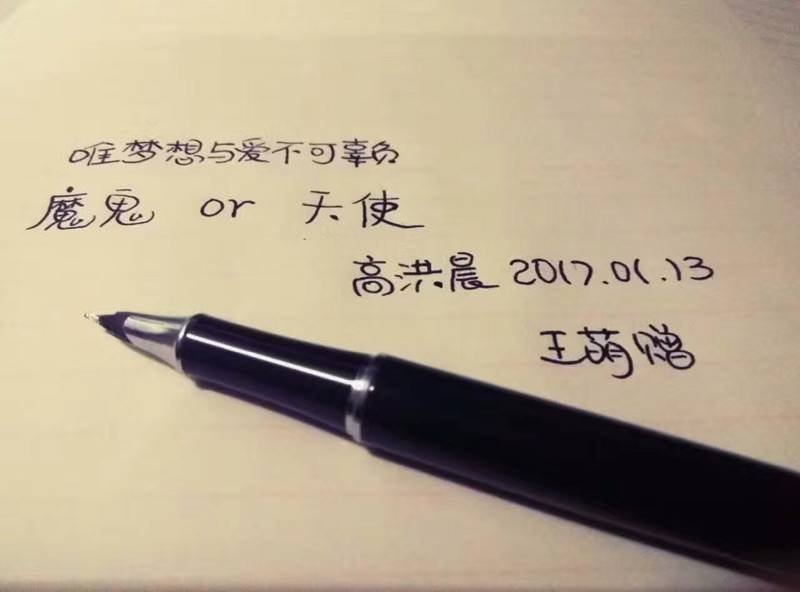 唯梦想与爱不可辜负
魔鬼 or 天使
高洪晨 2017.01.13
王萌赠